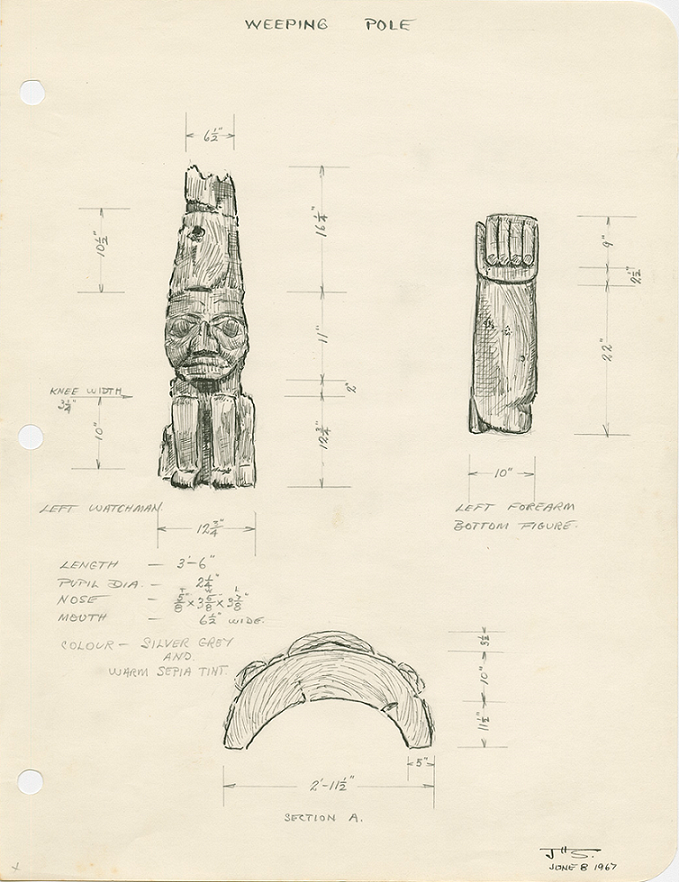 WEEPING POLE
6½"
10½"
16¼"
11"
2"
12¾"
KNEE WIDTH
3¼"
10"
LEFT WATCHMAN.
12¾"
9"
2½"
22"
10"
LEFT FOREARM
BOTTOM FIGURE.
LENGTH — 3'-6"
PUPIL DIA. — 2¼"
NOSE —
MOUTH — 6½" WIDE.
COLOUR — SILVER GREY
AND
WARM SEPIA TINT.
10"
11½"
5"
2'-11½"
SECTION A.
JHS.
JUNE 8 1967